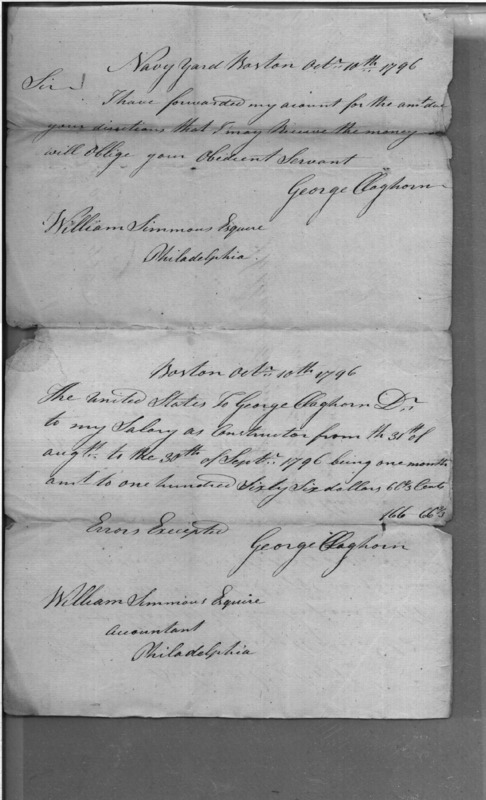 Navy Yard Boston Octr. 10th. 1796
Sir
I have forwarded my acount for the amt. due
your directions that I may Receive the money
will oblige your Obedient Servant
George Claghorn
William Simmons Esquire
Philadelphia.
Boston Octr. 10th 1796
The United States To George Claghorn Dr.
to my Salary as Constructor from the 31st of
augtt. to the 30th of Septr. 1796 being one month
amt to one hundred Sixty Six dollars Cents
166
Errors Excepted
George Claghorn
William Simmons Esquire
Accountant
Philadelphia